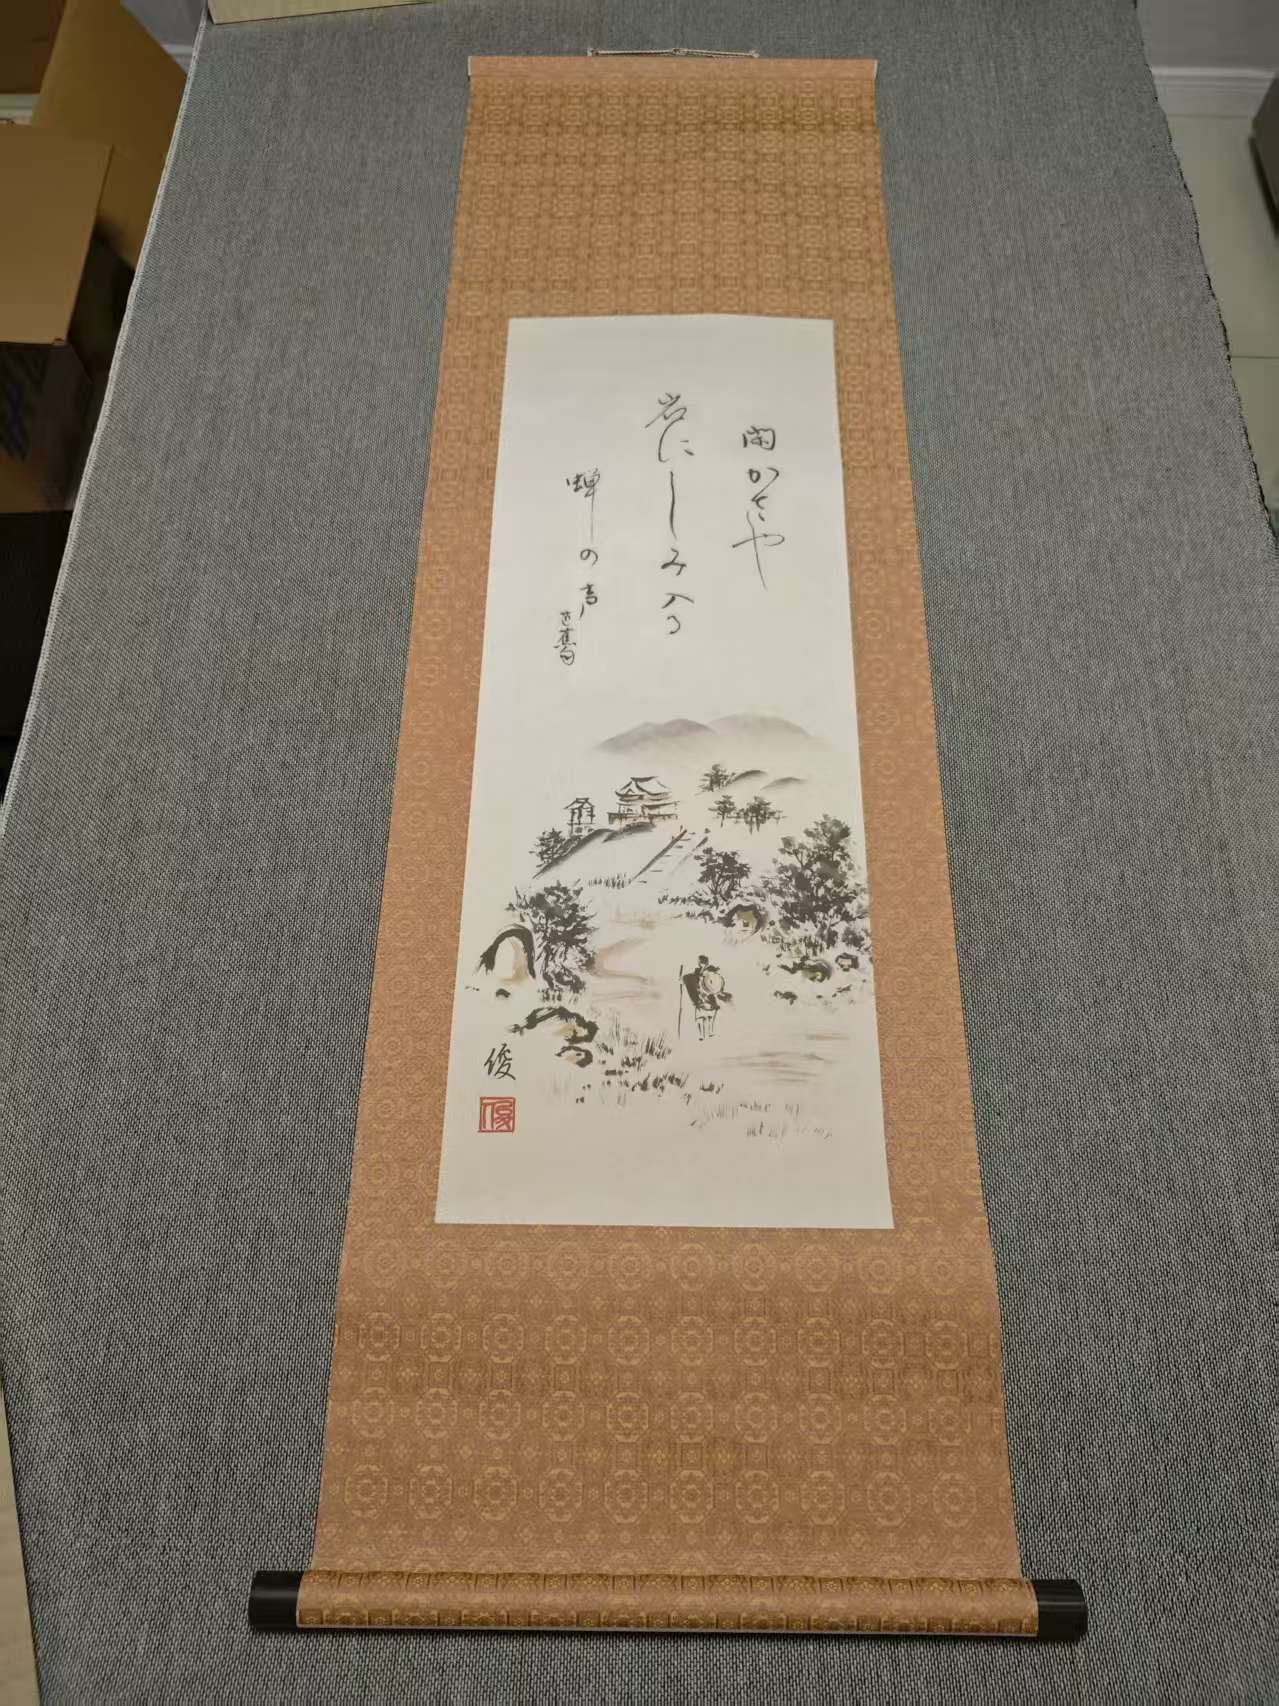 閑かさや
岩にしみ入る
蝉の声
芭蕉
俊
俊